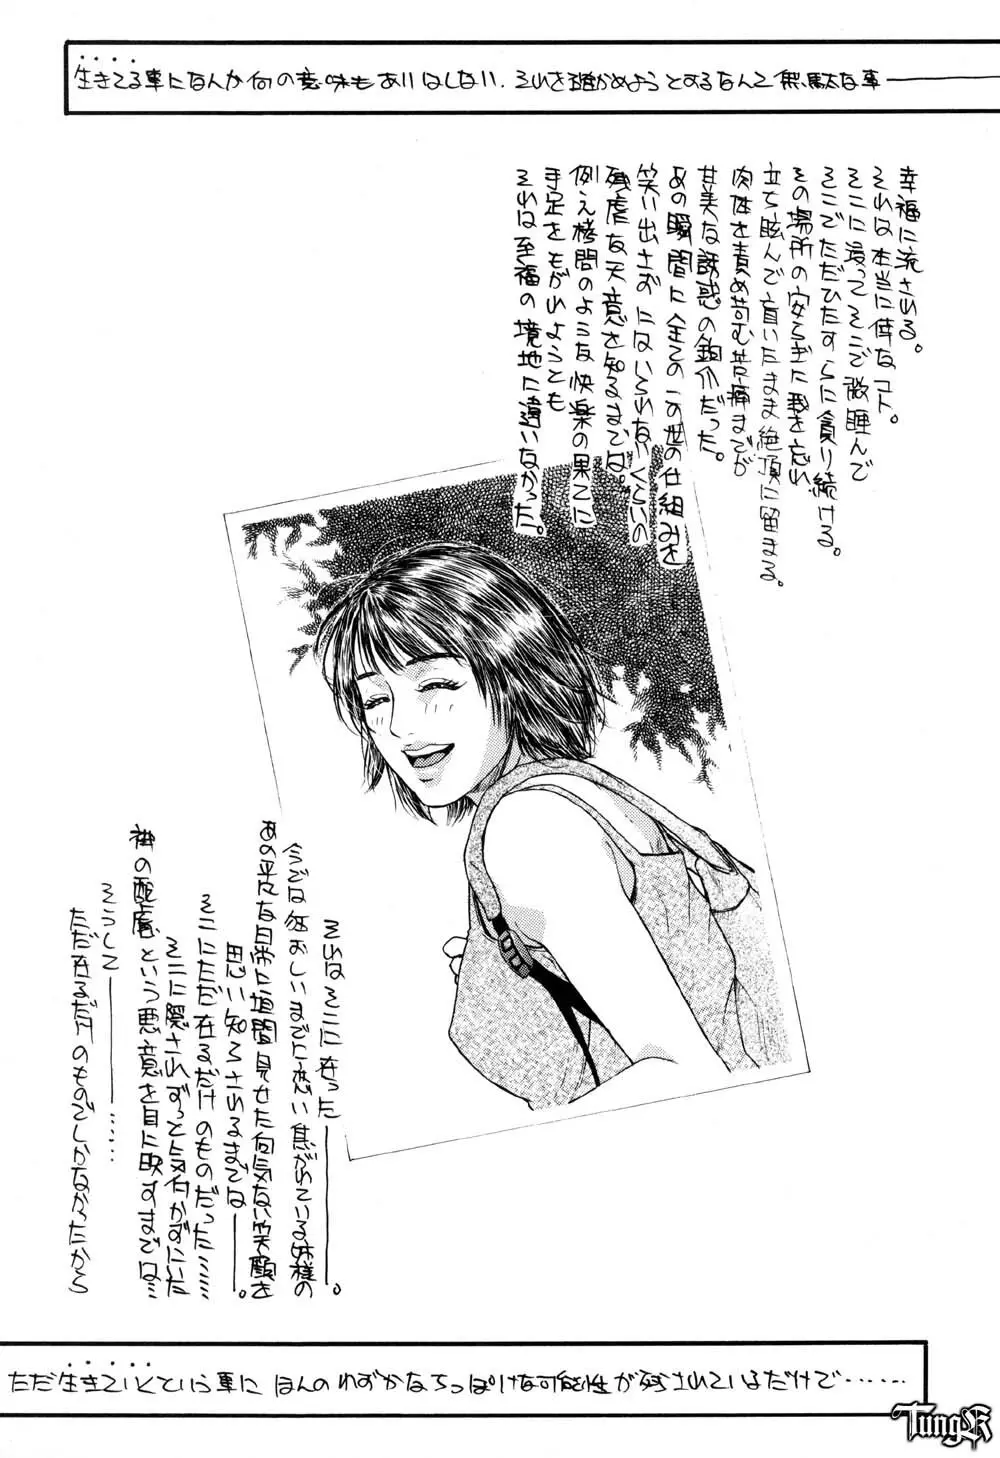 生きてる事になんか何の意味もありはしない．それを確かめようとするなんて無駄な事―――
幸福に流される。
それは本当に倖なコト。
そこに浸ってそこで微睡んで
そこでただひたすらに貪り続ける。
その場所の安らぎに我を忘れ
立ち眩んで盲いたまま絶頂に留まる。
肉体を責め苛む苦痛までが
甘美な誘惑の鉤爪だった。
あの瞬間に全てのこの世の仕組みを
笑い出さずにはいられないくらいの
残虐な天意を知るまでは。
例え拷問のような快楽の果てに
手足をもがれようとも
それは至福の境地に違いなかった。
それはそこに在った――――。
今ではいとおしいまでに恋い焦がれている姉様の
あの平凡な日常に垣間見せた何気ない笑顔を
思い知らされるまでは――。
そこにただ在るだけのものだった……
そこに隠されずっと気付かずにいた
神の配慮という悪意を目に映すまでは…
そうして――――……
ただ在るだけのものでしかなかったから
ただ生きていくという事に ほんのわずかなちっぽけな可能性が残されているだけで……
TungK